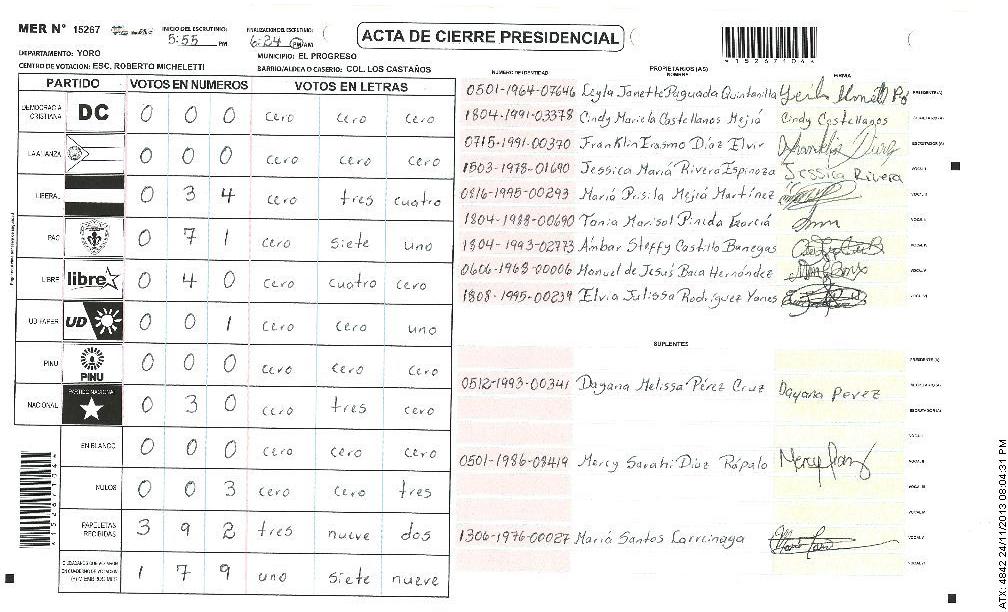 MER N° 15267
INICIO DEL ESCRUTINIO: 5:55 PM
FINALIZACION DEL ESCRUTINIO: 6:24 PM AM
ACTA DE CIERRE PRESIDENCIAL
DEPARTAMENTO: YORO
MUNICIPIO: EL PROGRESO
CENTRO DE VOTACION: ESC. ROBERTO MICHELETTI
BARRIO/ALDEA O CASERIO: COL. LOS CASTAÑOS
PARTIDO VOTOS EN NUMEROS VOTOS EN LETRAS
DEMOCRACIA CRISTIANA DC 0 0 0 cero cero cero
LA ALIANZA 0 0 0 cero cero cero
LIBERAL 0 3 4 cero tres cuatro
PAC 0 7 1 cero siete uno
LIBRE libre 0 4 0 cero cuatro cero
UD FAPER UD 0 0 1 cero cero uno
PINU PINU 0 0 0 cero cero cero
NACIONAL PARTIDO NACIONAL 0 3 0 cero tres cero
EN BLANCO 0 0 0 cero cero cero
NULOS 0 0 3 cero cero tres
PAPELETAS RECIBIDAS 3 9 2 tres nueve dos
1 7 9 uno siete nueve
NUMERO DE IDENTIDAD PROPIETARIOS (AS) NOMBRE FIRMA
0501-1964-07646 Leyla Janette Paguada Quintanilla PRESIDENTE(A)
1804-1991-03378 Cindy Mariela Castellanos Mejiá Cindy Castellanos
0715-1991-00370 Franklin Erasmo Diáz Elvir ESCRUTADOR(A)
1503-1978-01690 Jessica Mariá Rivera Espinoza Jessica Rivera VOCAL I
0816-1995-00293 Mariá Prisila Mejiá Martinez VOCAL II
1804-1988-00690 Tania Marisol Pineda Garciá
1804-1993-02773 Ambar Steffy Castillo Banegas VOCAL IV
0606-1968-00006 Manuel de Jesus Baca Hernández VOCAL V
1808-1995-00234 Elvia Julissa Rodriguez Yanes VOCAL VI
SUPLENTES
PRESIDENTE (A)
0512-1993-00341 Dayana Melissa Pérez Cruz Dayana Perez
ESCRUTADOR(A)
VOCAL I
0501-1986-08419 Mercy Sarahi Diáz Rápalo VOCAL II
VOCAL III
VOCAL IV
1306-1976-00027 Mariá Santos Larreinaga VOCAL V
ATX: 4842 24/11/2013 08:04:31 PM